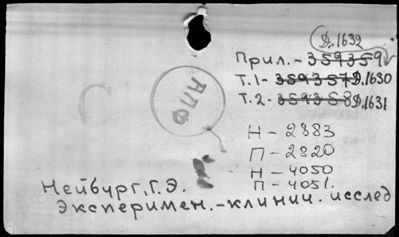 Д.1632
Прил.- 359359
Т.1- 359357 Д.1630
Т.2- 359358 Д.1631
АПФ
Н - 2883
П - 2820
Н - 4050
П - 4051.
Нейбург, Г.Э.
Эксперимен.-клинич. исслед